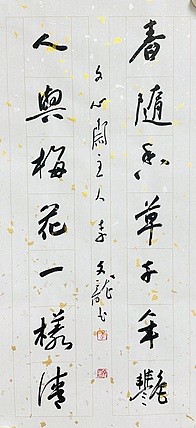 春随香草千年艳
人與梅花一樣清
文心雕主人李文龍书